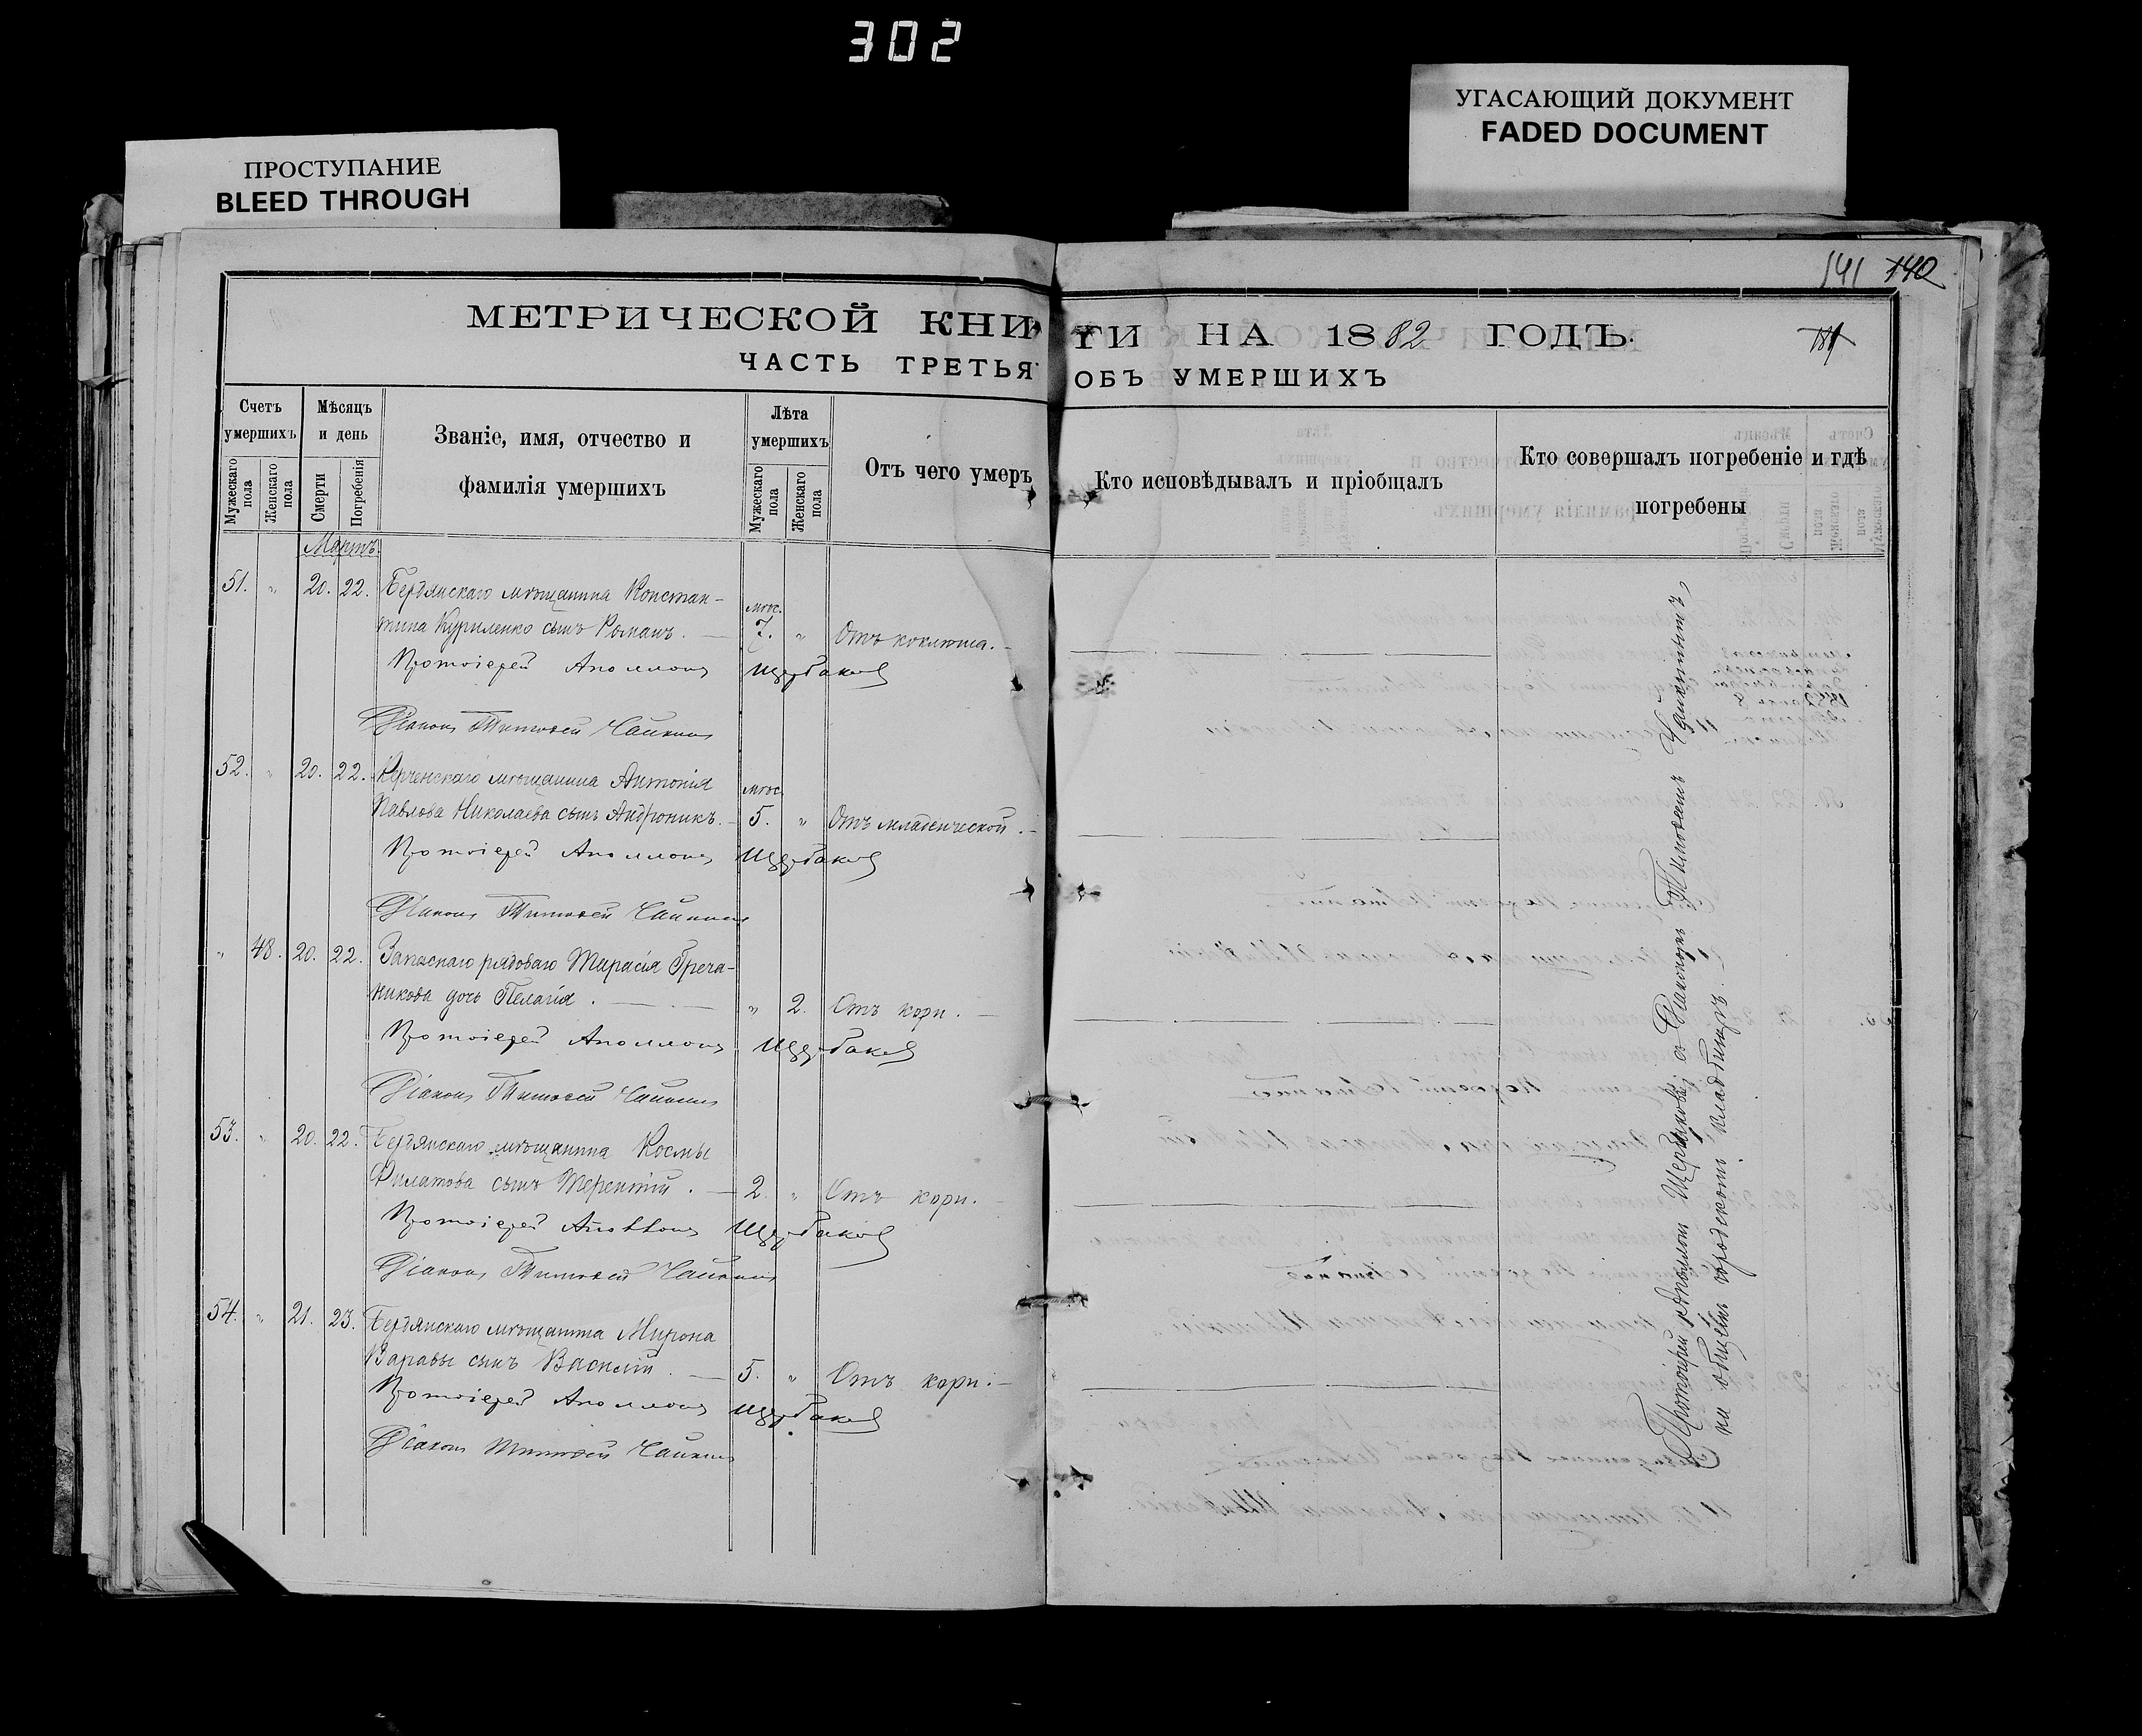 302
ПРОСТУПАНИЕ
BLEED THROUGH
УГАСАЮЩИЙ ДОКУМЕНТ
FADED DOCUMENT
141 140
МЕТРИЧЕСКОЙ КНИ
ГИ НА 1882 ГОДЪ.
181
ЧАСТЬ ТРЕТЬЯ
ОБЪ УМЕРШИХЪ
Счетъ умершихъ
Мужескаго пола
Женскаго пола
Мѣсяцъ и день
Смерти
Погребенія
Званіе, имя, отчество и
фамилія умершихъ
Лѣта умершихъ
Мужескаго пола
Женскаго пола
Отъ чего умеръ
Кто исповѣдывалъ и пріобщалъ
Кто совершалъ погребеніе и гдѣ
погребены
Мартъ
51. " 20. 22. Бердянскаго мѣщанина Констан-
мѣс.
тина Куриленко сынъ Романъ. — 7. " Отъ коклюша. —
Протоіерей Аполлонъ Щербаковъ
Діаконъ Тимофей Чайкинъ
52. " 20. 22. Керченскаго мѣщанина Антонія
мѣс.
Павлова Николаева сынъ Андроникъ. — 5. " Отъ младенческой. —
Протоіерей Аполлонъ Щербаковъ
Діаконъ Тимофей Чайкинъ
" 48. 20. 22. Запаснаго рядоваго Тарасія Греча-
никова дочь Пелагія. — " 2. Отъ кори. —
Протоіерей Аполлонъ Щербаковъ
Діаконъ Тимофей Чайкинъ
53. " 20. 22. Бердянскаго мѣщанина Космы
Филатова сынъ Терентій. — 2. " Отъ кори. —
Протоіерей Аполлонъ Щербаковъ
Діаконъ Тимофей Чайкинъ
54. " 21. 23. Бердянскаго мѣщанина Мирона
Варавы сынъ Василій. — 5. " Отъ кори. —
Протоіерей Аполлонъ Щербаковъ
Діаконъ Тимофей Чайкинъ
Протоіерей Аполлонъ Щербаковъ съ Діакономъ Тимофеемъ Чайкинымъ,
на общемъ городскомъ кладбищѣ.